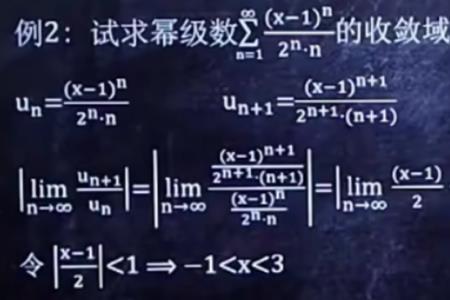 例2：试求幂级数∑_{n=1}^{∞} (x-1)^n/(2^n·n) 的收敛域
u_n=(x-1)^n/(2^n·n)  u_{n+1}=(x-1)^{n+1}/(2^{n+1}·(n+1))
|lim_{n→∞} u_{n+1}/u_n|=|lim_{n→∞} ((x-1)^{n+1}/(2^{n+1}·(n+1)))/((x-1)^n/(2^n·n))|=|lim_{n→∞} (x-1)/2
令 |(x-1)/2|<1 ⟹ -1<x<3